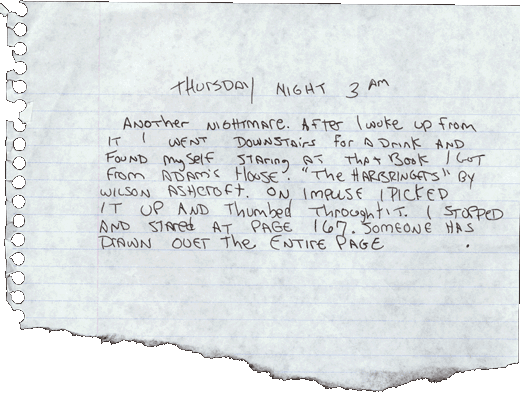 THURSDAY NIGHT 3 AM
ANOTHER NIGHTMARE. AFTER I WOKE UP FROM
IT I WENT DOWNSTAIRS FOR A DRINK AND
FOUND MYSELF STARING AT THAT BOOK I GOT
FROM ADAM'S HOUSE. "THE HARBRINGERS" BY
WILSON ASHCROFT. ON IMPULSE I PICKED
IT UP AND THUMBED THROUGH IT. I STOPPED
AND STARED AT PAGE 167. SOMEONE HAS
DRAWN OVET THE ENTIRE PAGE .